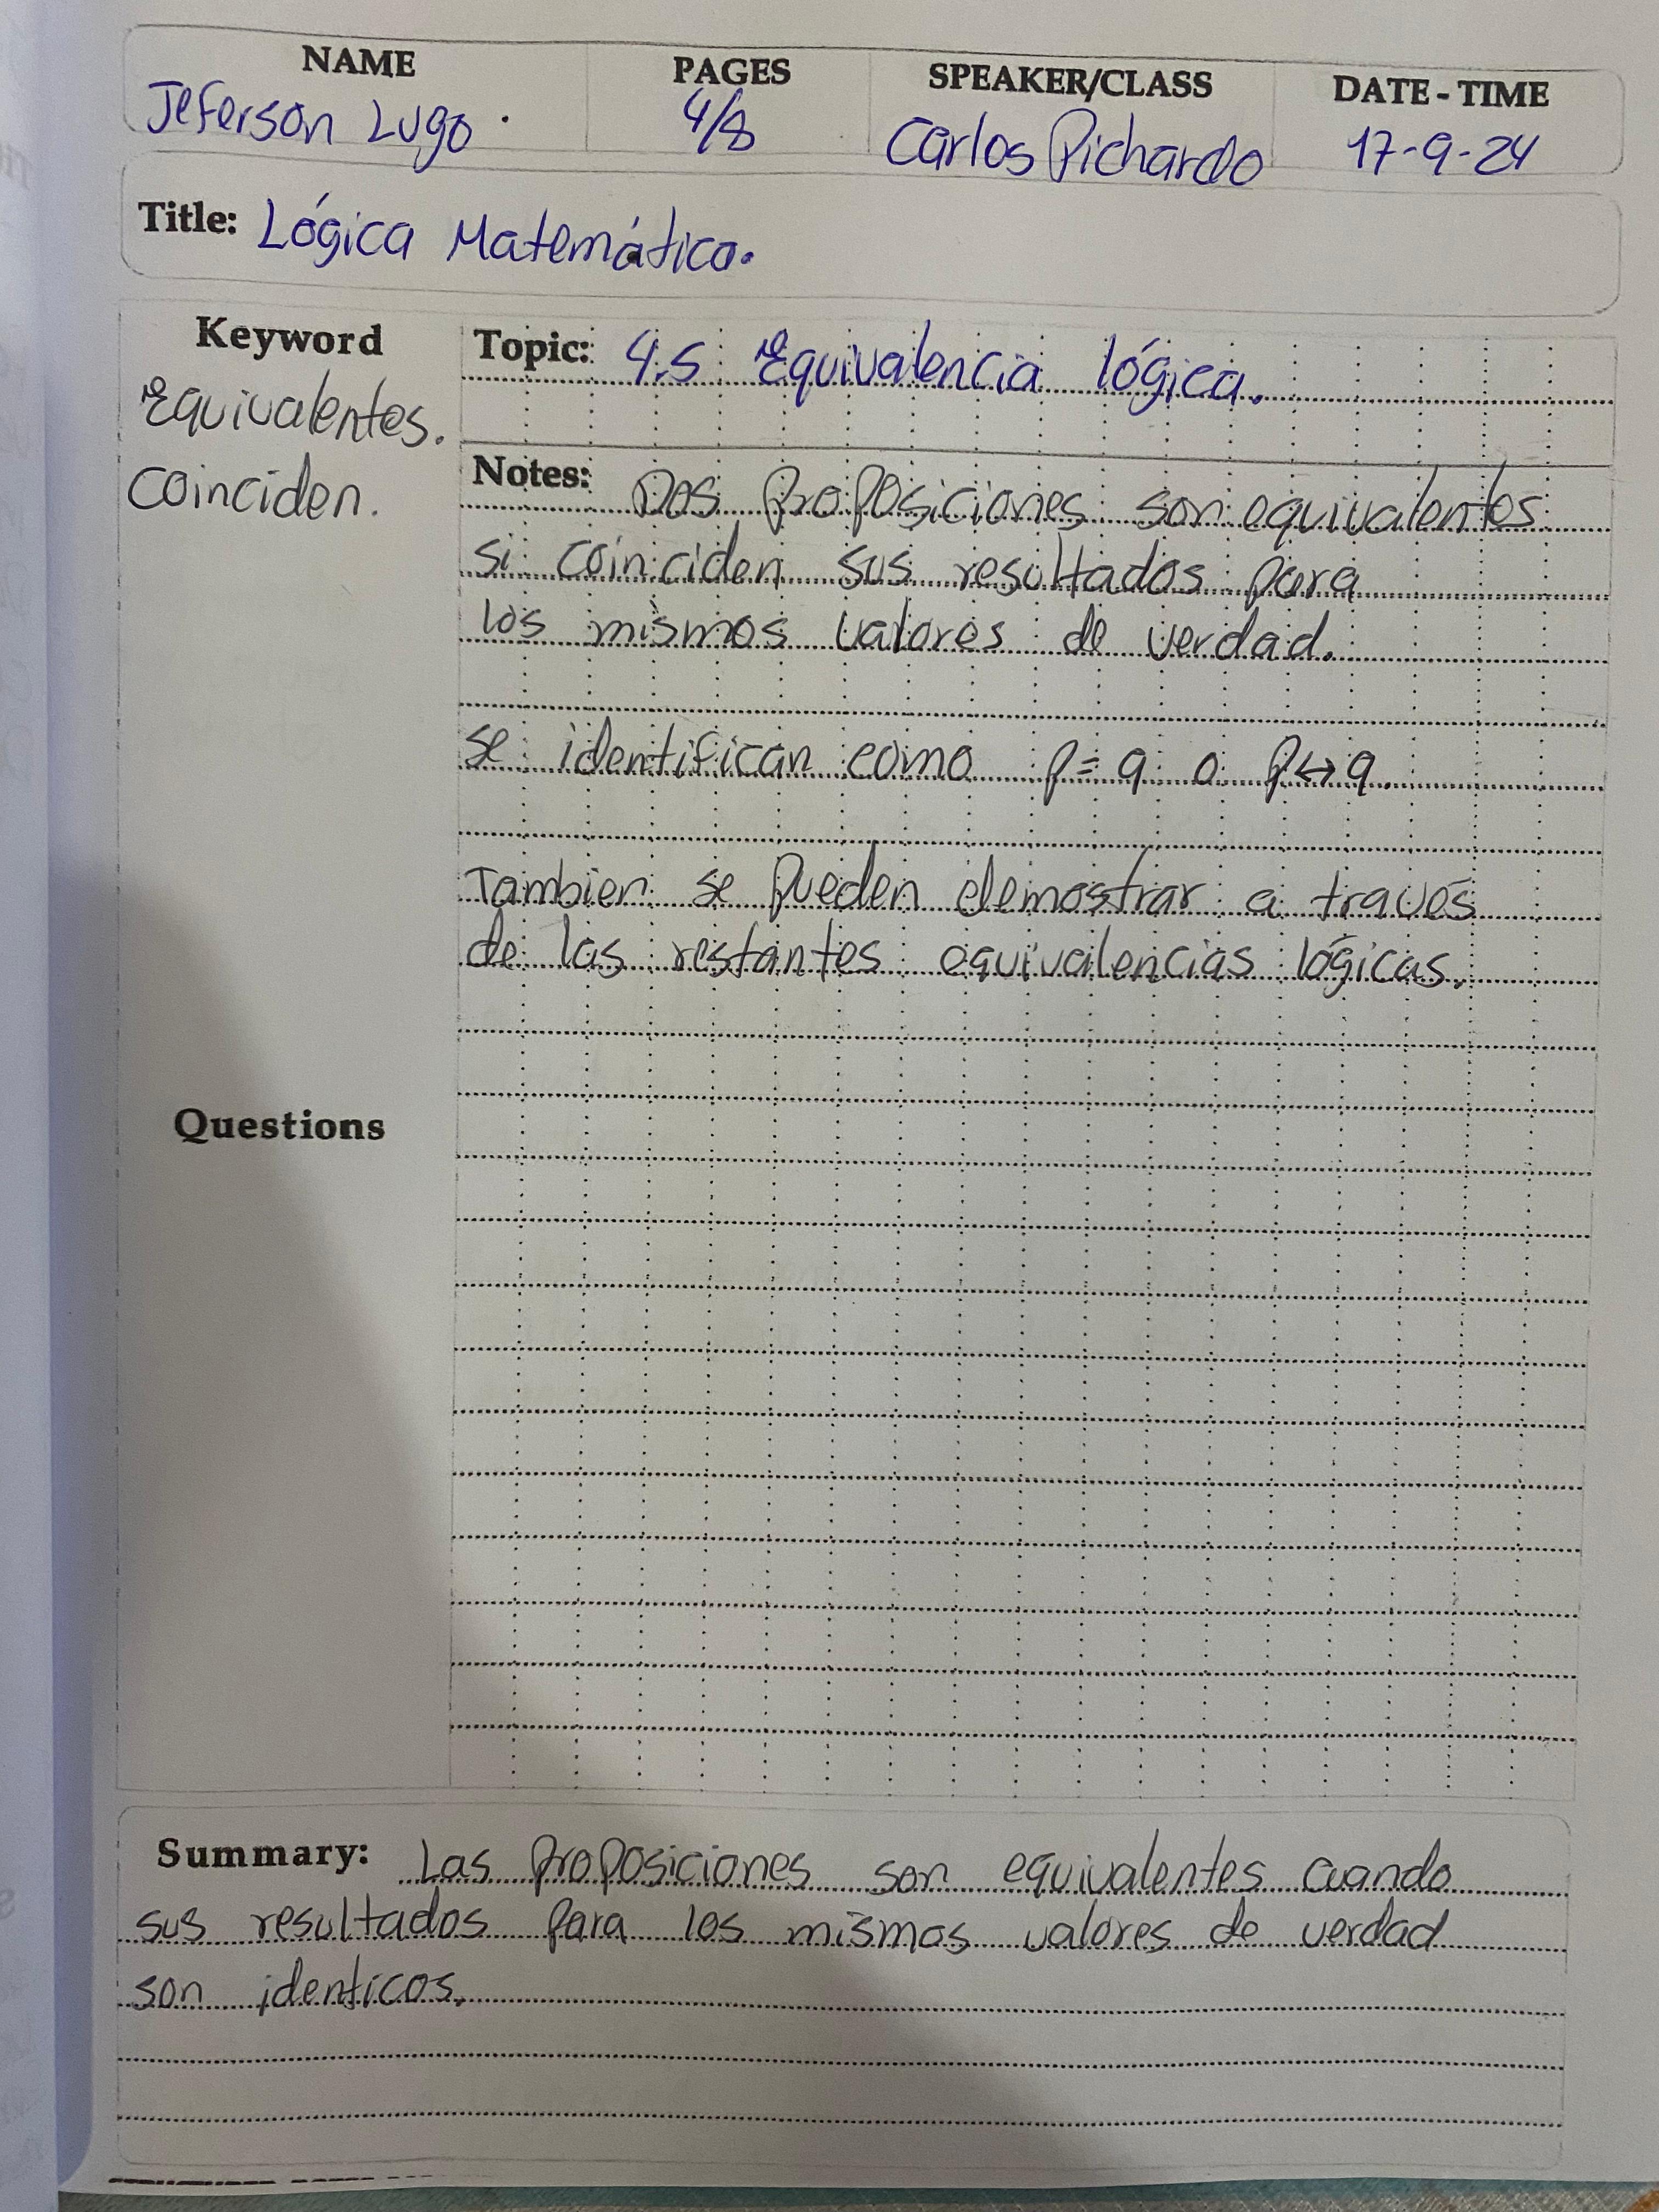 NAME PAGES SPEAKER/CLASS DATE - TIME
Jeferson Lugo. 4/8 Carlos Pichardo 17-9-24
Title: Lógica Matemática.
Keyword
Equivalentes.
Coinciden.
Topic: 4.5 Equivalencia lógica.
Notes: Dos proposiciones son equivalentes
si coinciden sus resultados para
los mismos valores de verdad.
se identifican como p = q o p ↔ q.
Tambien se pueden demostrar a través
de las restantes equivalencias lógicas.
Questions
Summary: Las proposiciones son equivalentes cuando
sus resultados para los mismos valores de verdad
son identicos.